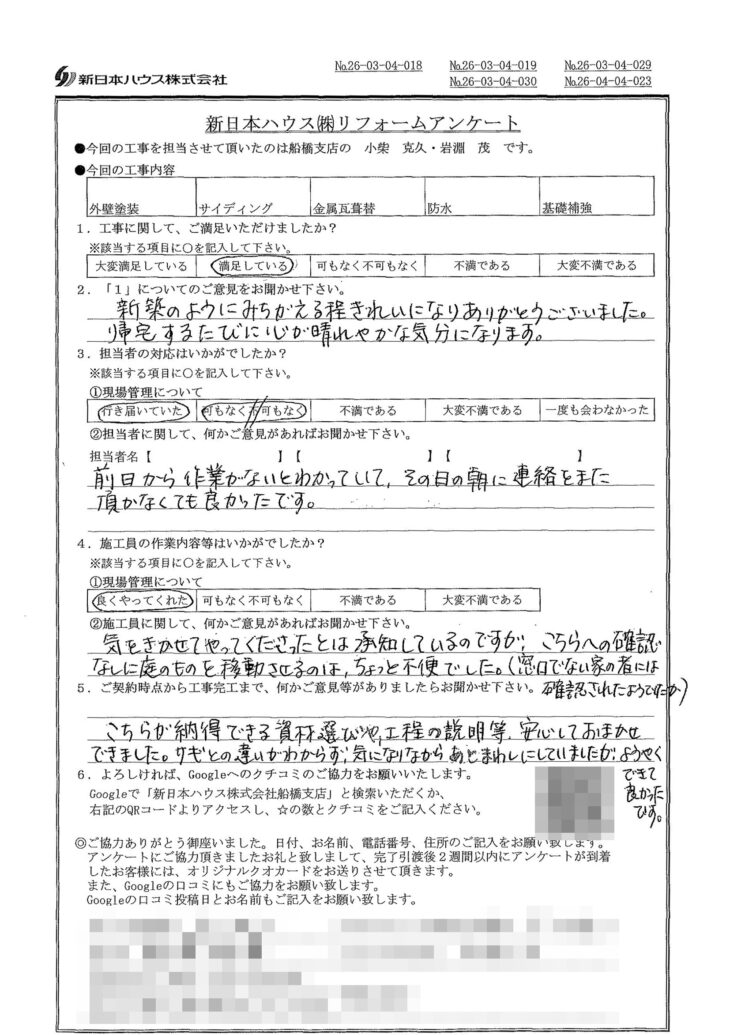 新日本ハウス株式会社
№26-03-04-018 №26-03-04-019 №26-03-04-029
№26-03-04-030 №26-04-04-023
新日本ハウス㈱リフォームアンケート
●今回の工事を担当させて頂いたのは船橋支店の 小柴 克久・岩淵 茂 です。
●今回の工事内容
外壁塗装 サイディング 金属瓦葺替 防水 基礎補強
1．工事に関して、ご満足いただけましたか？
※該当する項目に〇を記入して下さい。
大変満足している 満足している 可もなく不可もなく 不満である 大変不満である
2．「1」についてのご意見をお聞かせ下さい。
新築のようにみちがえる程きれいになりありがとうございました。
帰宅するたびに心が晴れやかな気分になります。
3．担当者の対応はいかがでしたか？
※該当する項目に〇を記入して下さい。
①現場管理について
行き届いていた 可もなく不可もなく 不満である 大変不満である 一度も会わなかった
②担当者に関して、何かご意見があればお聞かせ下さい。
担当者名【 】【 】【 】
前日から作業がないとわかってして、その日の朝に連絡をまた
頂かなくても良かったです。
4．施工員の作業内容等はいかがでしたか？
※該当する項目に〇を記入して下さい。
①現場管理について
良くやってくれた 可もなく不可もなく 不満である 大変不満である
②施工員に関して、何かご意見があればお聞かせ下さい。
気をきかせてやってくださったとは承知しているのですが、こちらへの確認
なしに庭のものを移動させるのは、ちょっと不便でした。(窓口でない家の者には
確認されたようですが)
5．ご契約時点から工事完工まで、何かご意見等がありましたらお聞かせ下さい。
こちらが納得できる資材選びや、工程の説明等、安心しておまかせ
できました。サギとの違いがわからず、気になりながらあとまわしにしていましたが、ようやく
できて
良かった
です。
6．よろしければ、Googleへのクチコミのご協力をお願いいたします。
Googleで「新日本ハウス株式会社船橋支店」と検索いただくか、
右記のQRコードよりアクセスし、☆の数とクチコミをご記入ください。
◎ご協力ありがとう御座いました。日付、お名前、電話番号、住所のご記入をお願い致します。
アンケートにご協力頂きましたお礼と致しまして、完了引渡後２週間以内にアンケートが到着
したお客様には、オリジナルクオカードをお送りさせて頂きます。
また、Googleの口コミにもご協力をお願い致します。
Googleの口コミ投稿日とお名前もご記入をお願い致します。